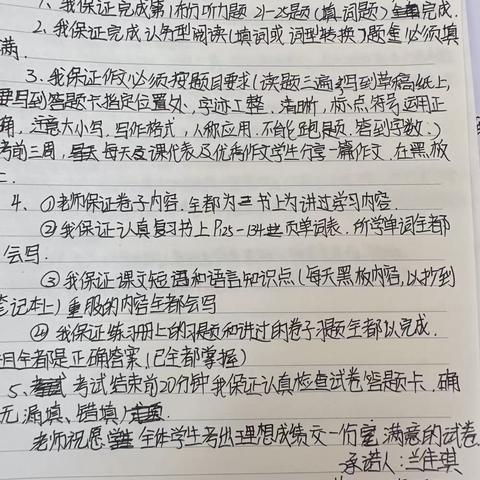 1、我保证完成第1部听力题 21-25题(填词题)完成.
2、我保证完成认务型阅读(填词或词型转换)题全必须填
满.
3、我保证作文必须按题目要求(读题三遍写到草稿纸上,
要写到答题卡指定位置处,字迹工整.清晰,标点符号运用正
确,注意大小写.写作格式,人称应用.不能跑题.答到字数:)
考前三周,每天课代表及优秀作文学生分享一篇作文.在黑板
上.
4、①老师保证卷子内容.全都为书上为讲过学习内容.
②我保证认真复习书上P125-134页单词表.所学单词全都
会写.
③我保证课文短语和语言知识点(每天黑板内容,以抄到
笔记本上)重股的内容全都会写
④我保证练习册上的习题和讲过的卷子习题全都以完成.
且全都是正确答案(已全都掌握)
5、考试结束前20分钟我保证认真检查试卷答题卡.确
无漏填、错填)
老师祝愿全体学生考出理想成绩交一份满意的试卷
承诺人:兰佳琪